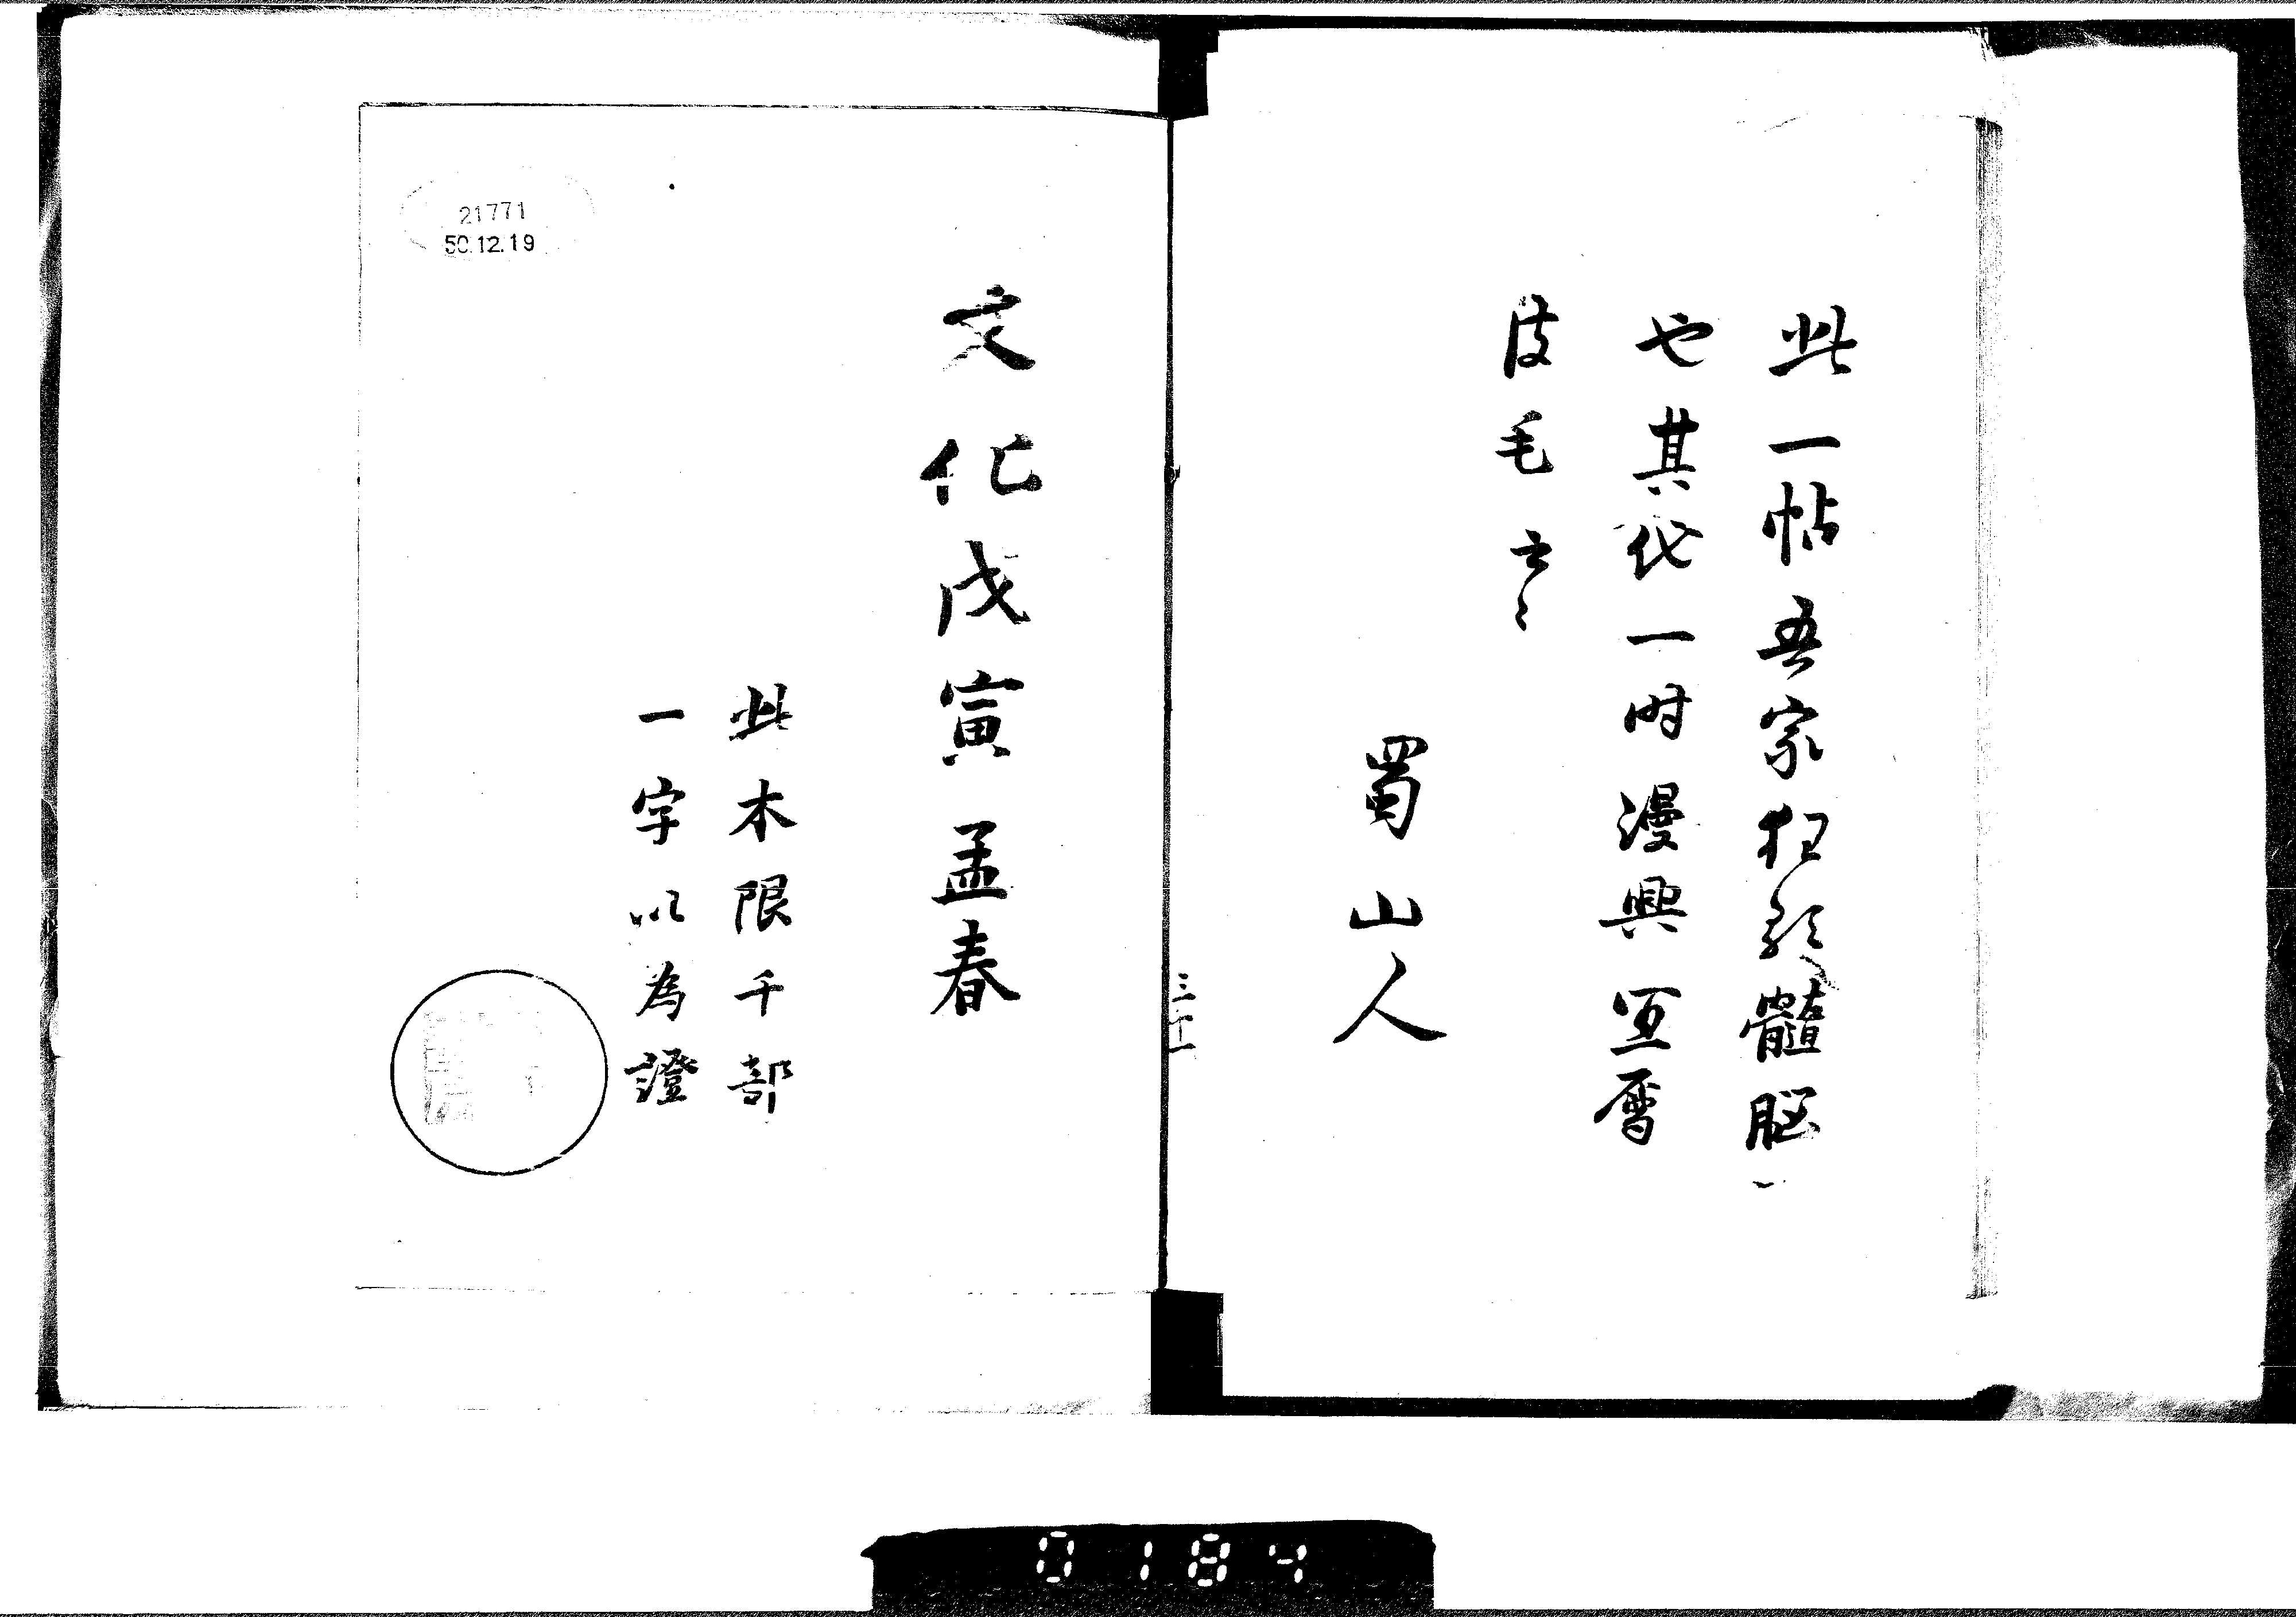 此一帖吾家狂歌髄脳
也其他一時漫興宜属
皮毛云々
蜀山人
三十一
文化戊寅孟春
此本限千部
一字以為證
21771
50.12.19
0184